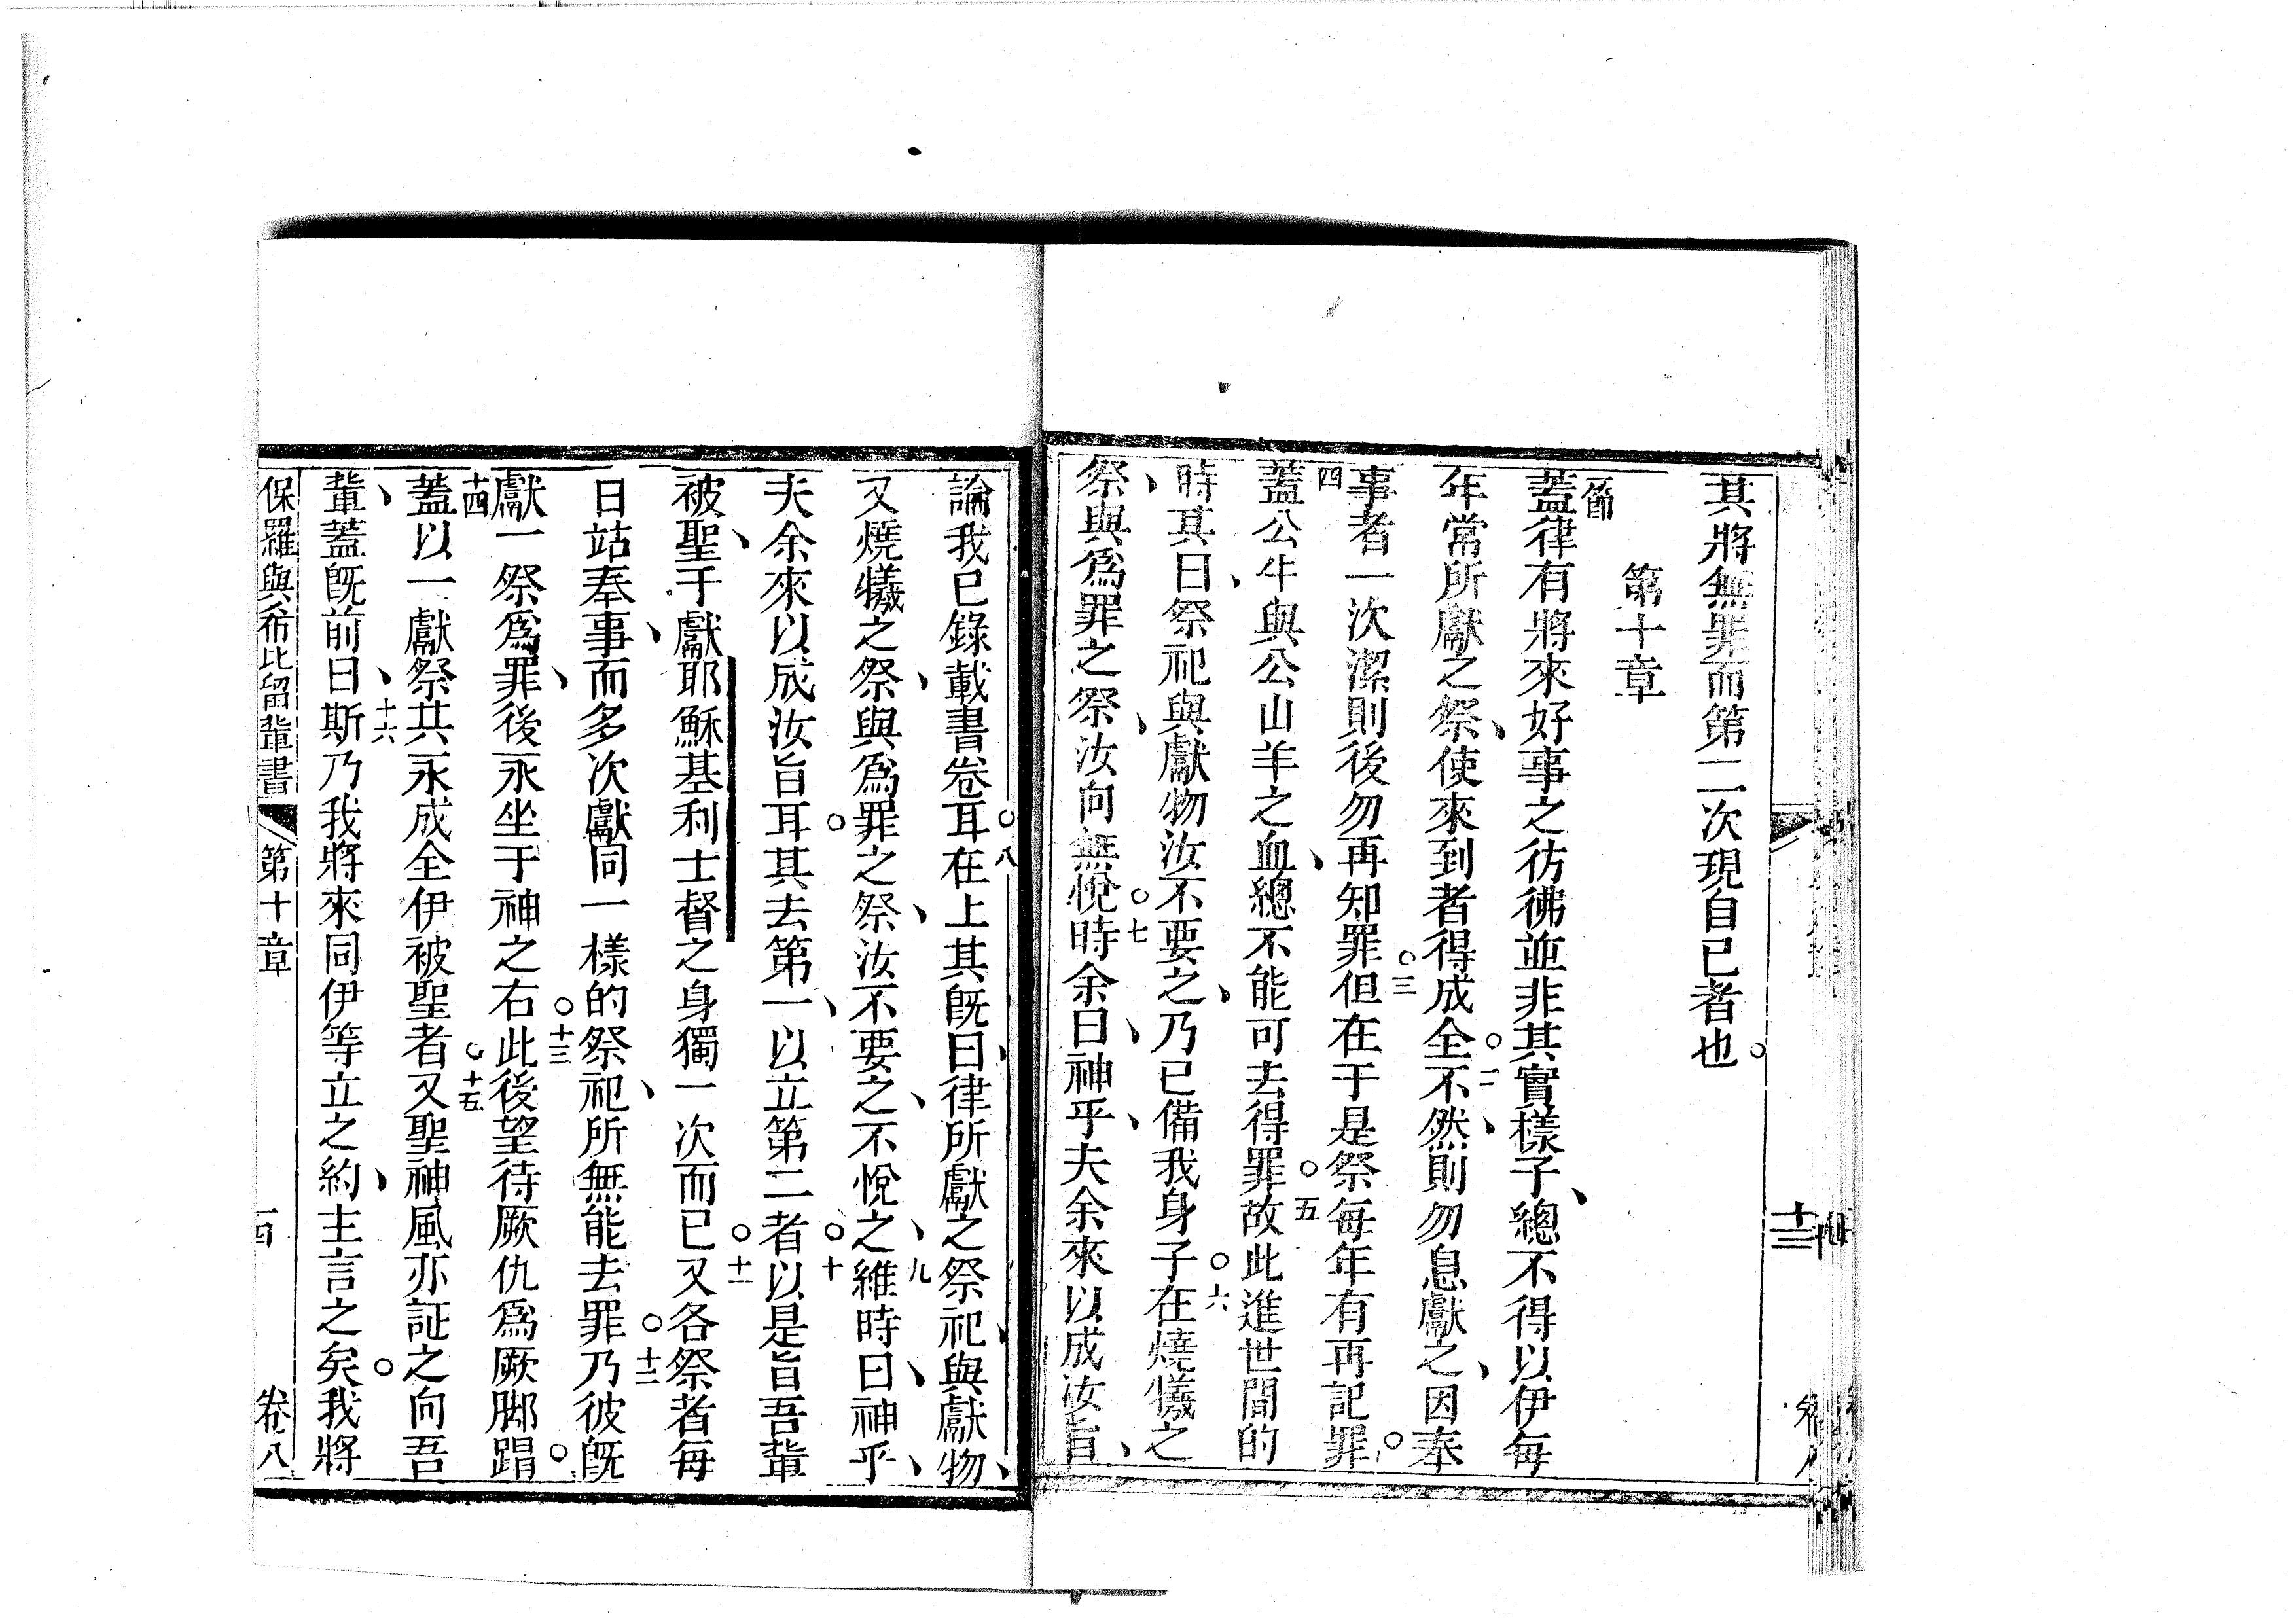 其將無罪而第二次現自己者也。
第十章
蓋律有將來好事之彷彿並非其實樣子、總不得以伊每
年常所獻之祭、使來到者得成全。二不然、則勿息獻之、因奉
事者一次潔則後勿再知罪。三但在于是祭每年有再記罪。
四蓋公牛與公山羊之血、總不能可去得罪。五故此進世間的
時其曰、祭祀與獻物汝不要之、乃已備我身子。六在燒犧之
祭、與為罪之祭、汝向無悅。七時余曰、神乎、夫余來以成汝旨、
論我已錄載書卷耳。八在上其既曰、律所獻之祭祀、與獻物、
又燒犧之祭、與爲罪之祭、汝不要之、不悅之、九維時曰、神乎、
夫余來以成汝旨耳。其去第一、以立第二者。十以是旨吾輩
被聖、于獻耶穌基利士督之身獨一次而已。十一又各祭者每
日站奉事、而多次獻同一樣的祭祀、所無能去罪。十二乃彼既
獻一祭爲罪、後永坐于神之右。十三此後望待厥仇爲厥脚踘。
十四蓋以一獻祭其永成全伊被聖者。十五又聖神風亦証之向吾
輩、蓋既前曰、十六斯乃我將來同伊等立之約、主言之矣。我將
保羅與希比留輩書 第十章 卷八